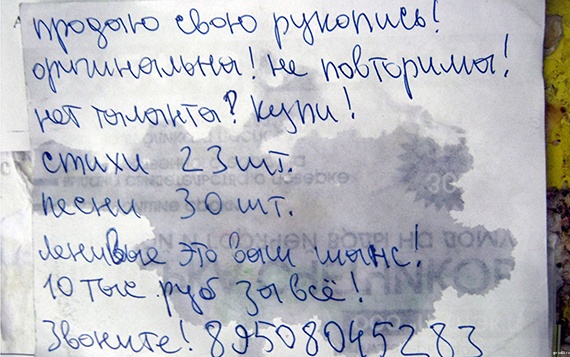 продаю свою рукопись!
оригинальны! не повторимы!
нет таланта? купи!
стихи 23 шт.
песни 30 шт.
ленивые это ваш шанс!
10 тыс руб за всё!
Звоните! 89508045283